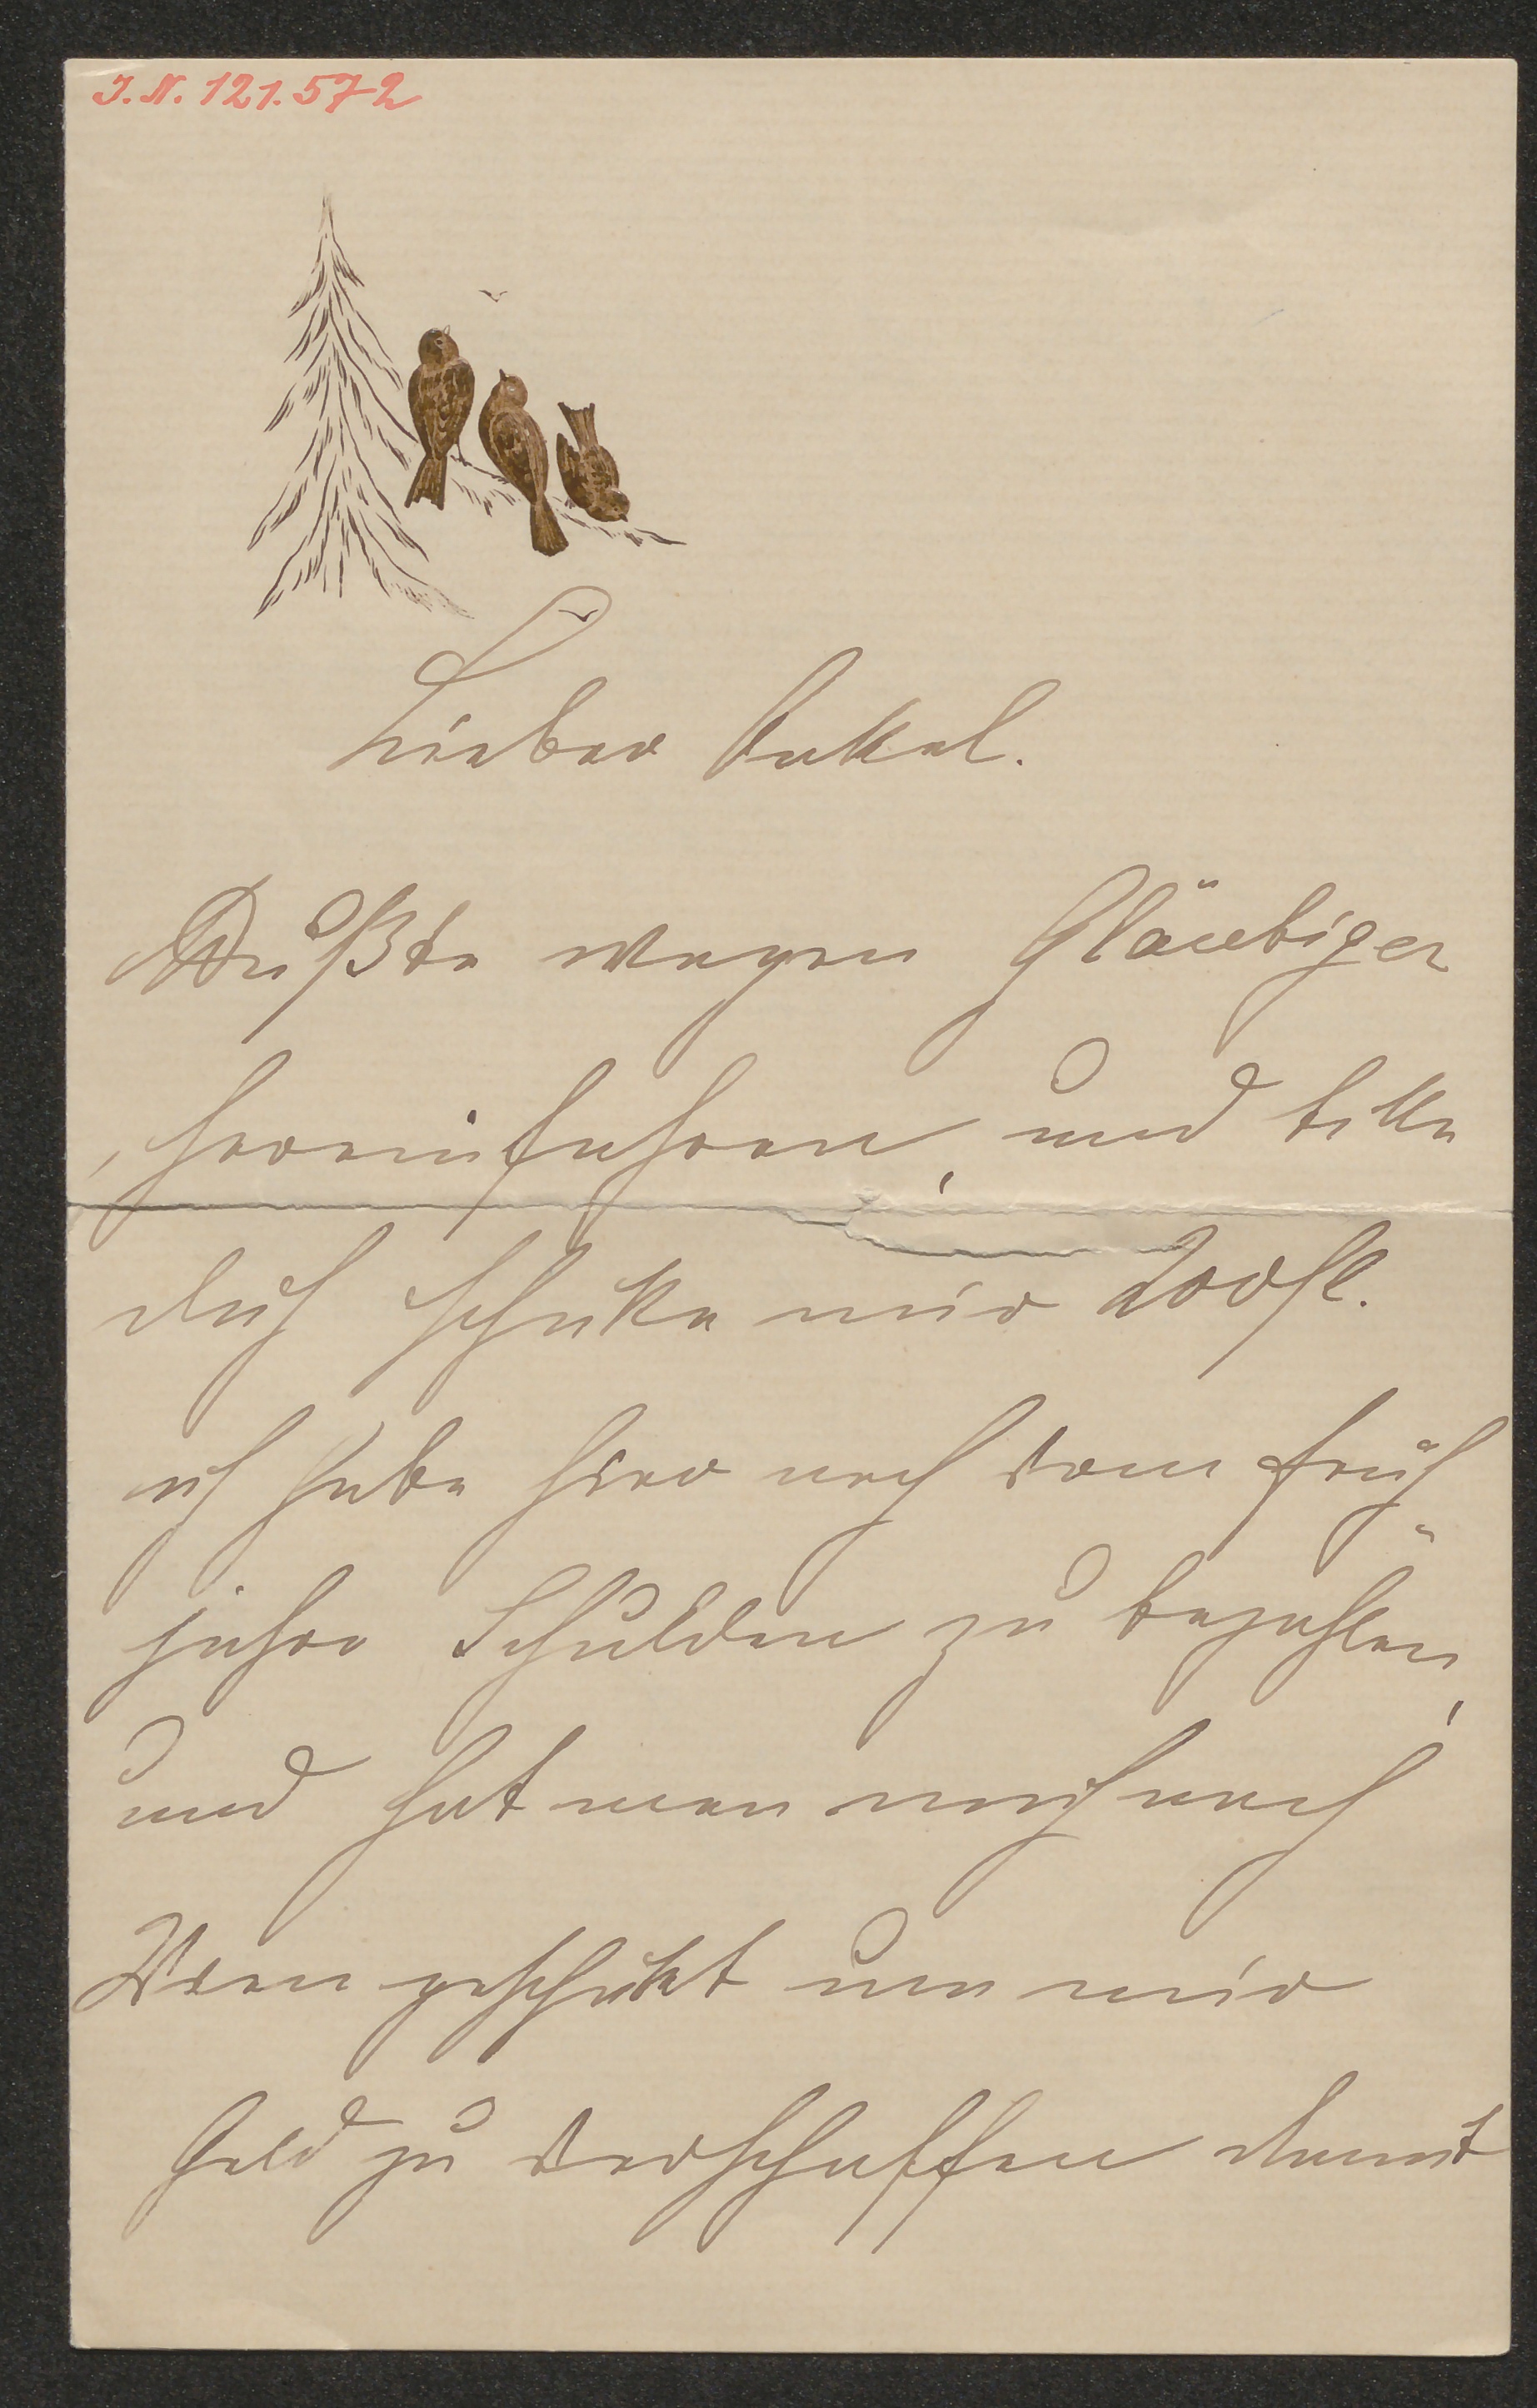 I.N. 121.572
Lieber Onkel.
Mußte wegen Gläubiger
hereinfahren, und bitte
dich schicke mir 200 fl.
ich habe hier noch vom Früh
jahre Schulden zu bezahlen,
und hat man mich nach
Wien geschickt um mir
Geld zu verschaffen damit